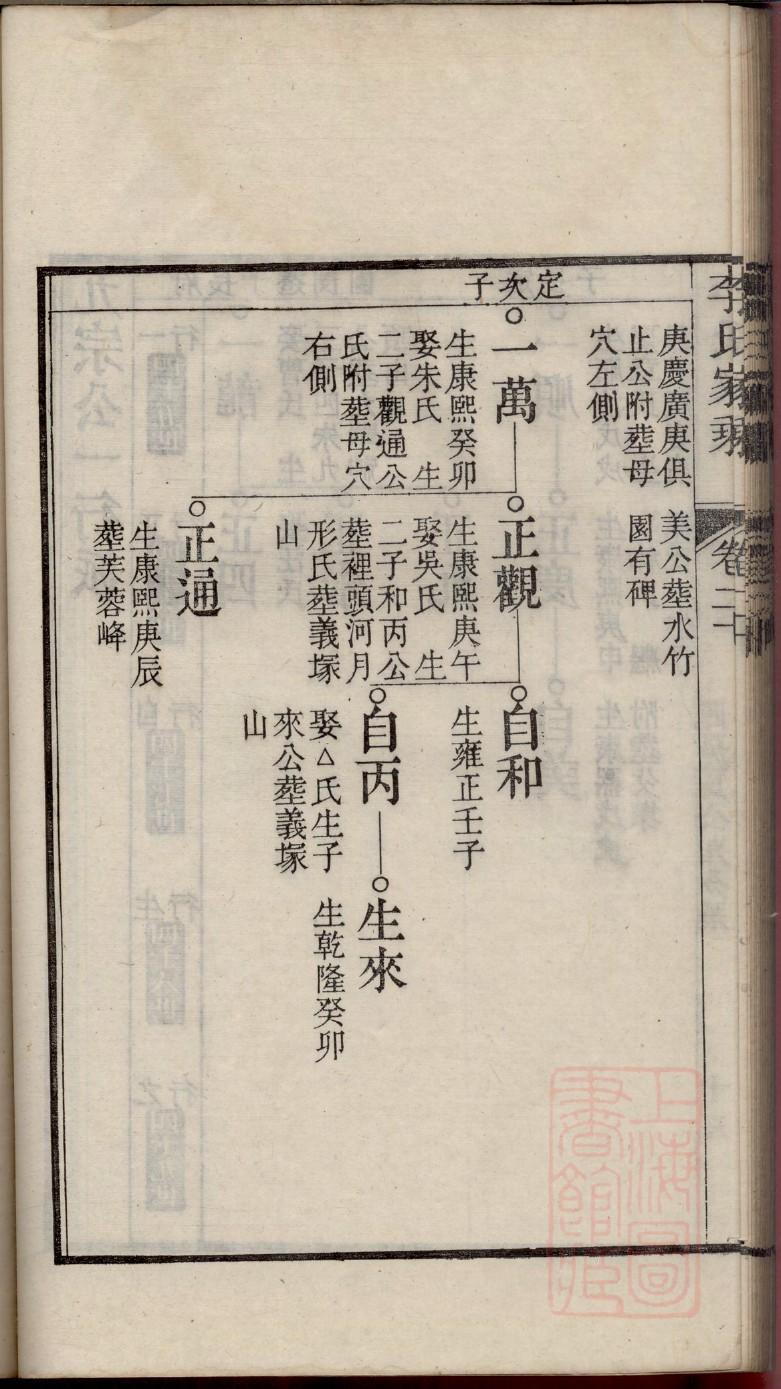 李氏家乘
卷二十
庚慶廣庚俱
止公附塟母
穴左側
美公塟水竹
園有碑
定次子
一萬
生康熙癸卯
娶朱氏 生
二子觀通公
氏附塟母穴
右側
正觀
生康熙庚午
娶吳氏 生
二子和丙公
塟裡頭河月
形氏塟義塚
山
自和
生雍正壬子
自丙
娶△氏生子
來公塟義塚
山
生來
生乾隆癸卯
正通
生康熙庚辰
塟芙蓉峰
上海圖
書館藏